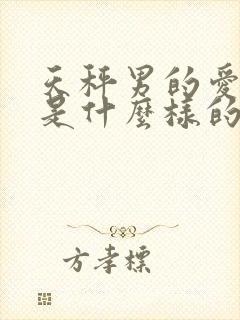 天秤男的愛
是什麼樣的
方孝標